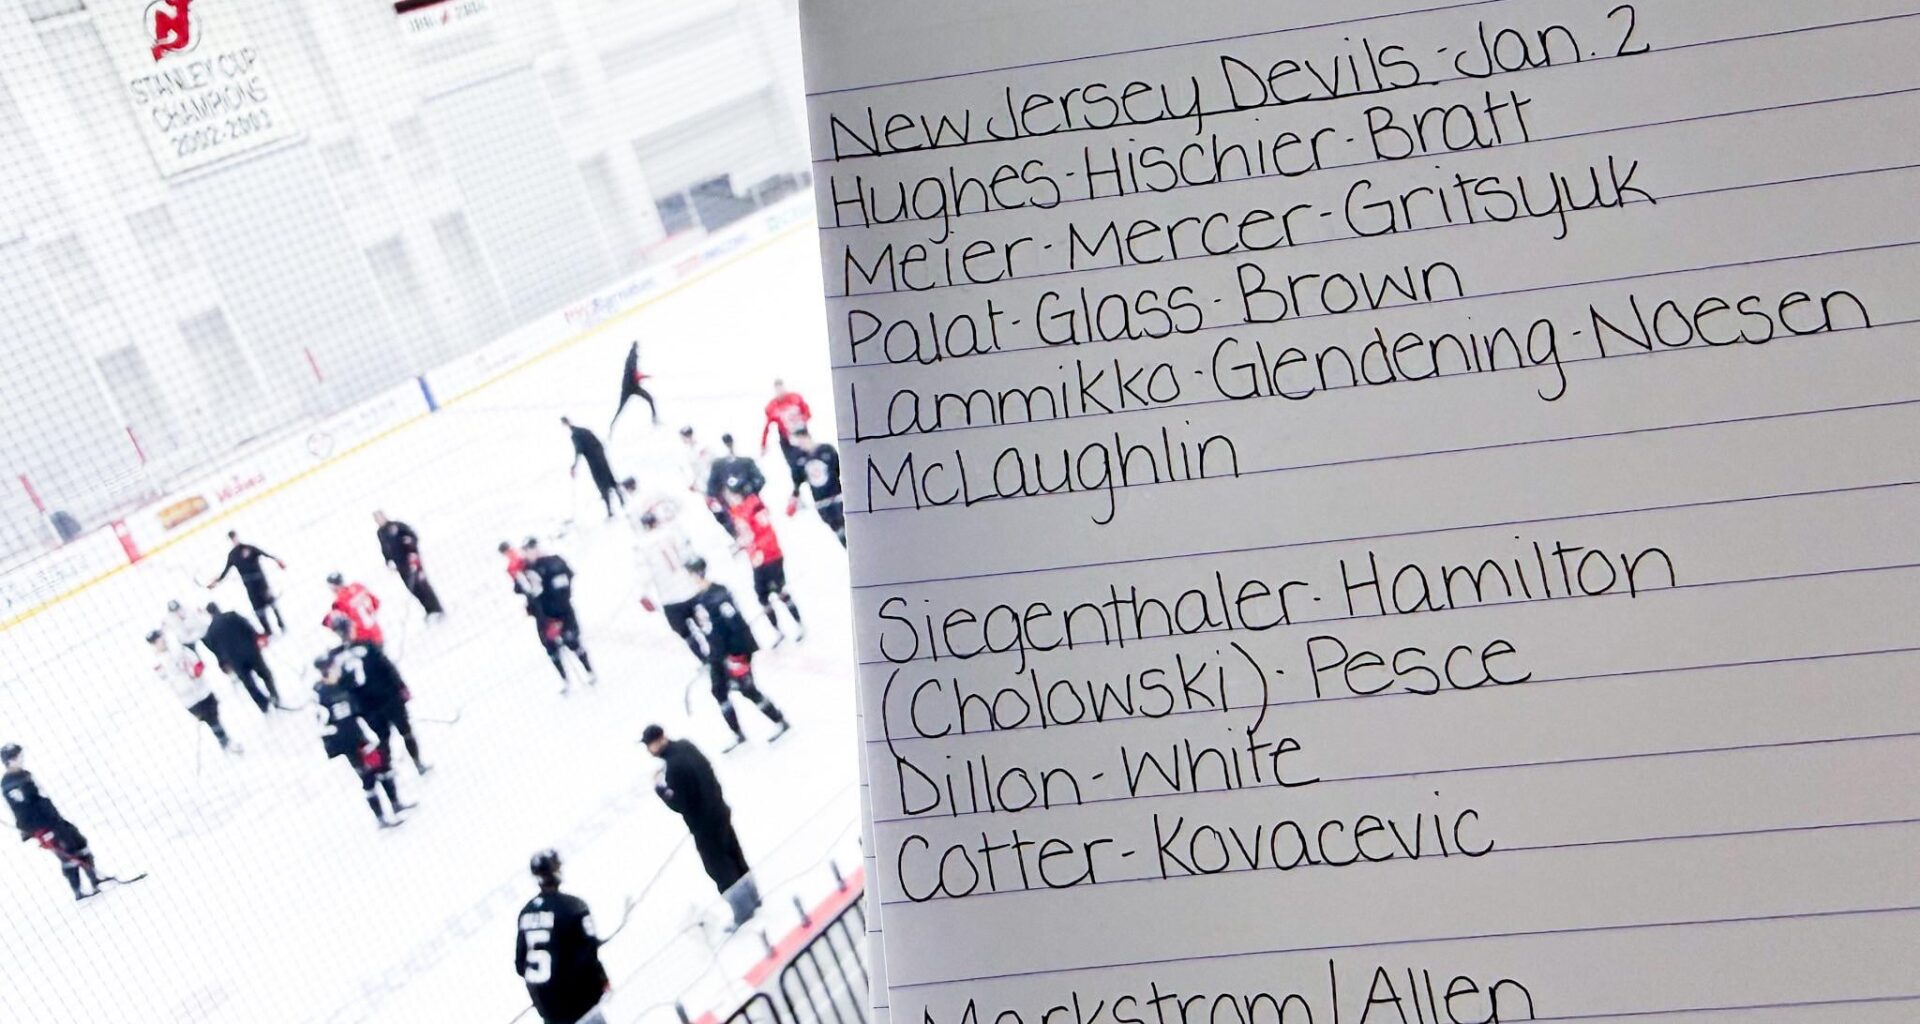 STANLEY CUP
CHAMPIONS
2002-2003
New Jersey Devils - Jan. 2
Hughes - Hischier - Bratt
Meier - Mercer - Gritsyuk
Palat - Glass - Brown
Lammikko - Glendening - Noesen
McLaughlin
Siegenthaler - Hamilton
(Cholowski) - Pesce
Dillon - White
Cotter - Kovacevic
Markstrom / Allen
5